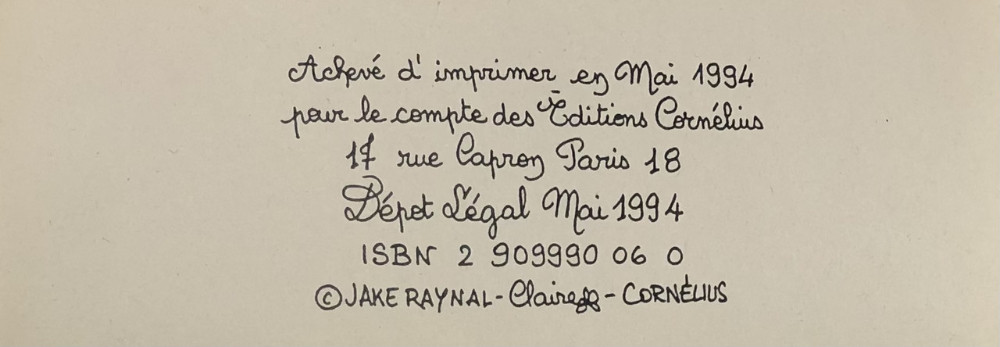 Achevé d'imprimer en Mai 1994
pour le compte des Éditions Cornélius
17 rue Capron Paris 18
Dépot Légal Mai 1994
ISBN 2 909990 06 0
© JAKE RAYNAL - Claire - CORNÉLIUS